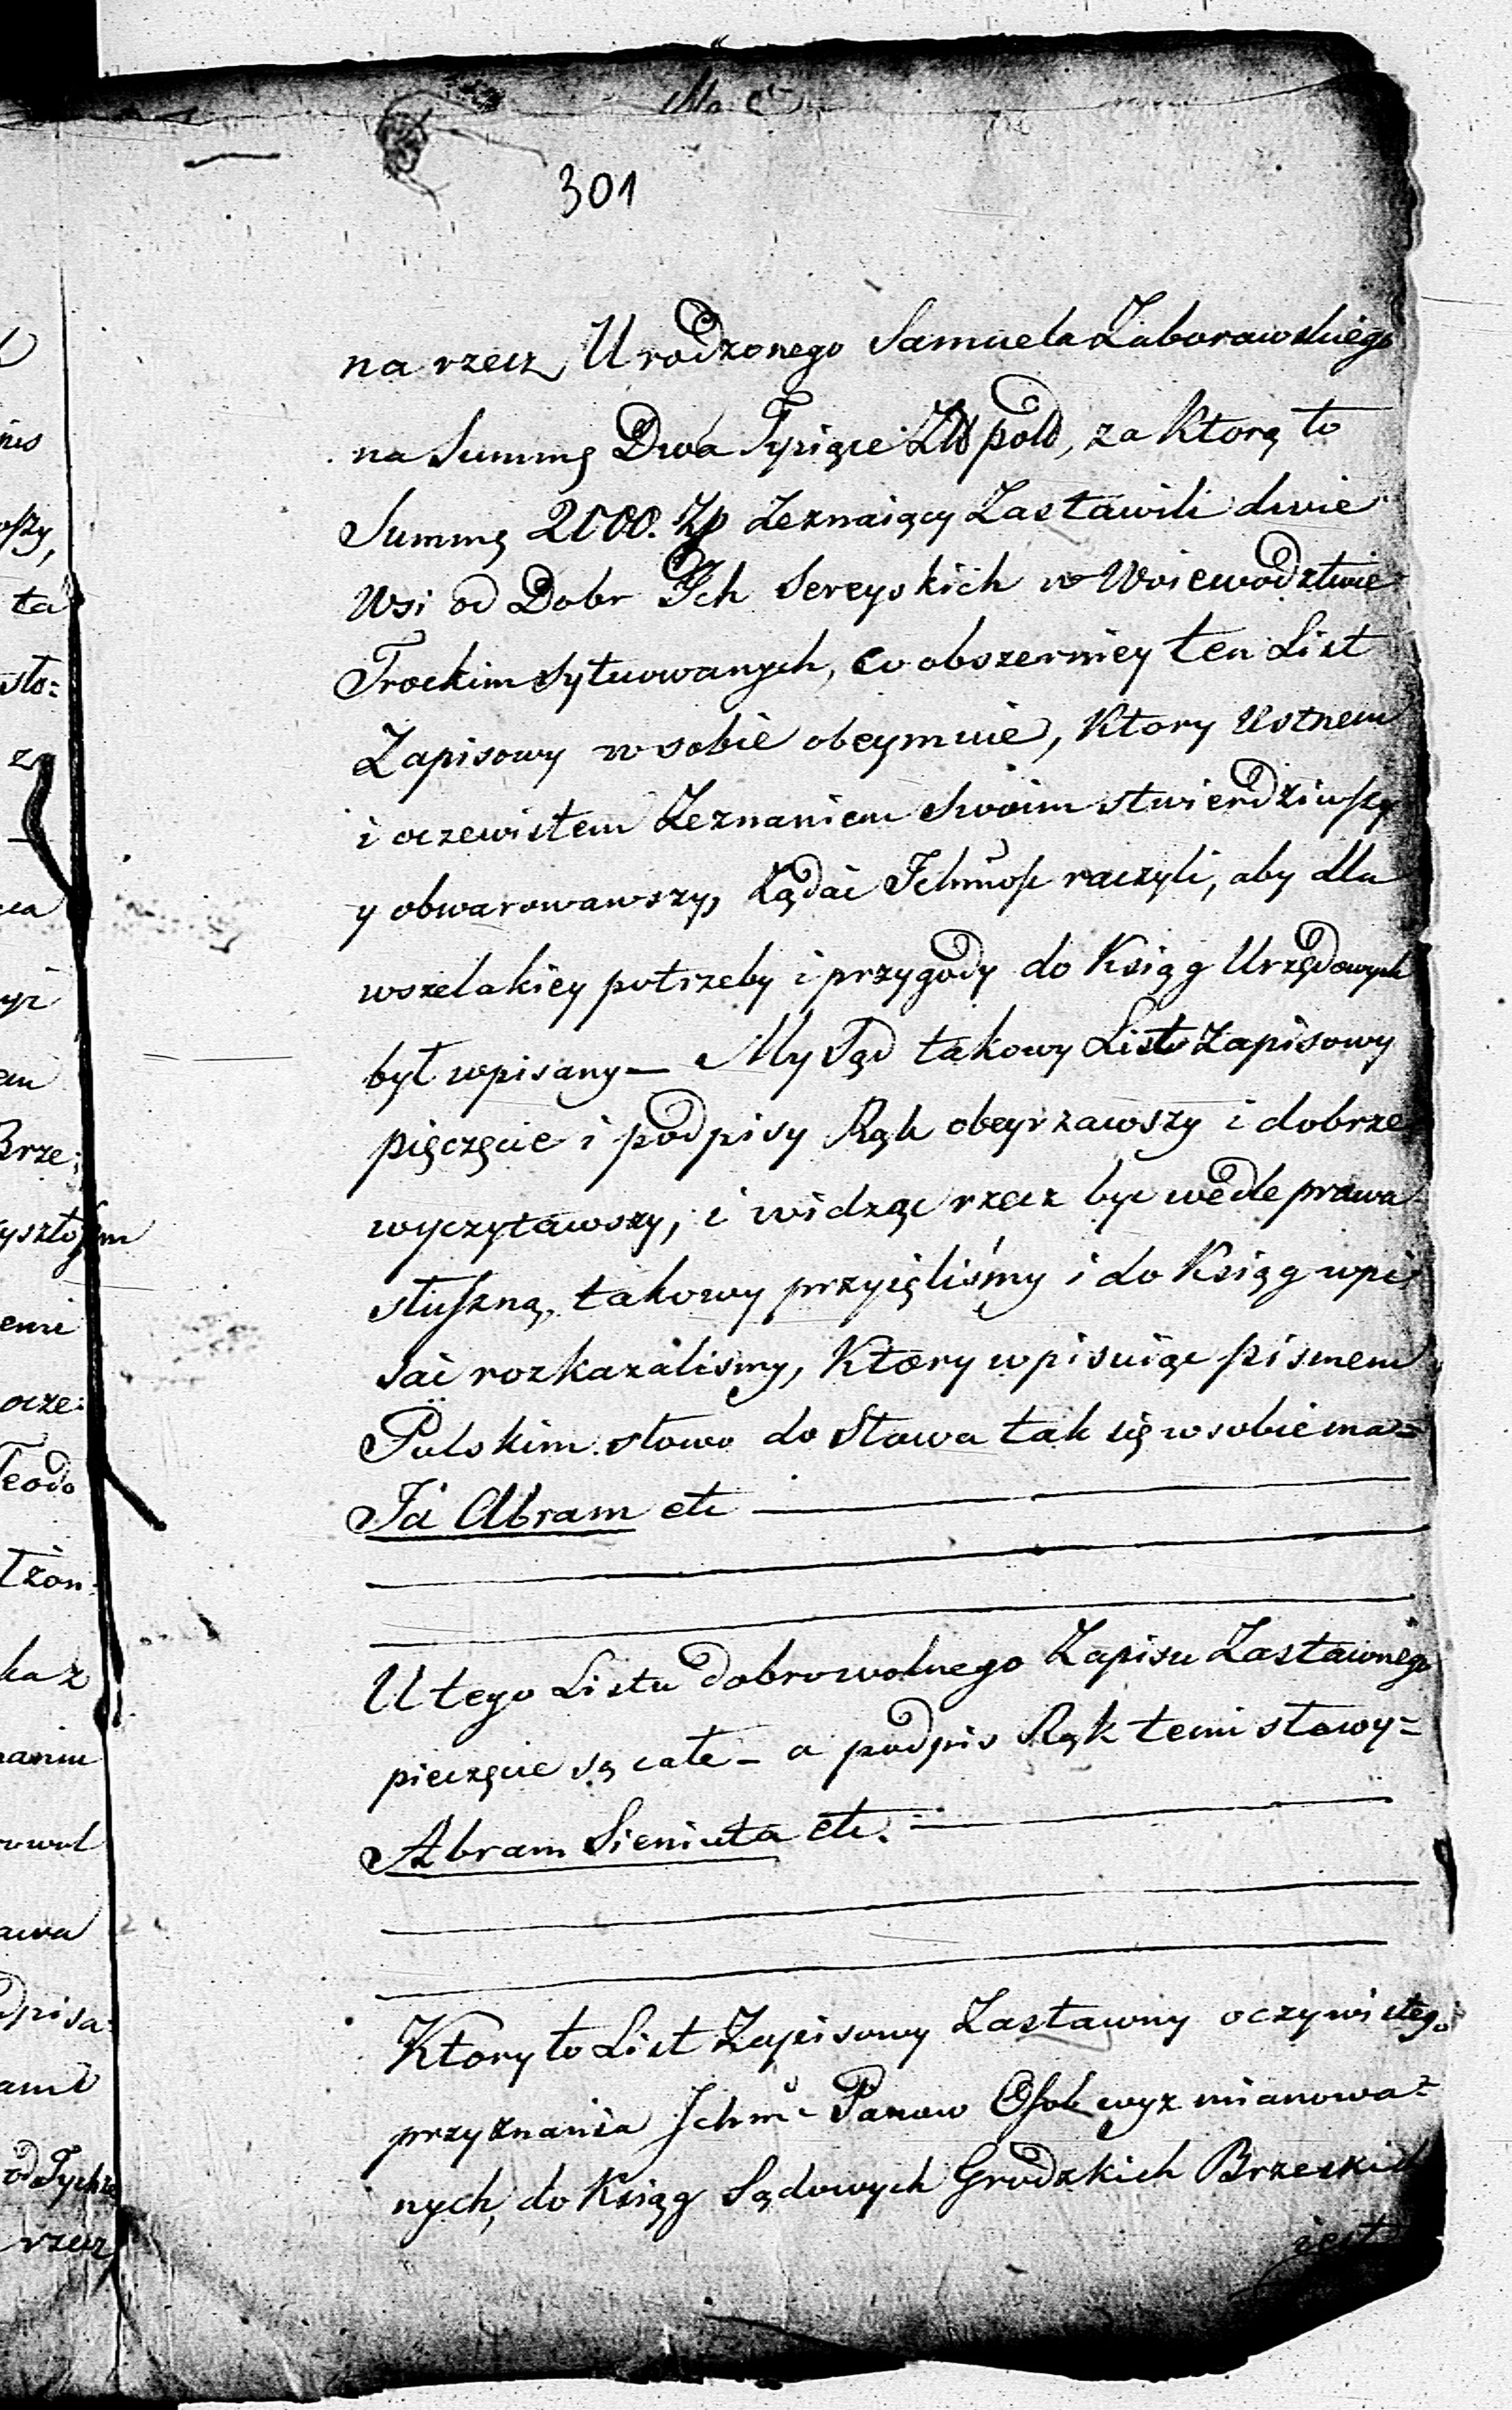 301
na rzecz Urodzonego Samuela Zaborawskiego
na Summę Dwa Tysiące Złł polł, za Ktorą to
Summę 2000. Zp Zeznaiący Zastawili dwie
Wsi od Dobr Ich Sereyskich w Woiewodztwie
Trockim Sytuowanych, co obszerniey ten List
Zapisowy w sobie obeymuie, Ktory Ustnem
i oczewistem Zeznaniem Swoim stwierdziwszy
y obwarowawszy, żądać Ichmość raczyli, aby dla
wszelakiey potrzeby i przygody do Ksiąg Urzędowych
był wpisany — My Sąd takowy List Zapisowy
pięczęcie i podpisy Rąk obeyrzawszy i dobrze
wyczytawszy, i widząc rzecz byc wedle prawa
słuszną, takowy przyięliśmy i do Ksiąg wpi
sać rozkazaliśmy, Ktory wpisuiąc pismem
Polskim słowo do Słowa tak się w sobie ma =
Ja Abram etc
U tego Listu dobrowolnego Zapisu Zastawnego
pieczęcie są całe – a podpis Rąk temi słowy =
Abram Sieniuta etc.
Ktory to List Zapisowy Zastawny oczywistego
przyznania Ichmc Panow Osob wyz mianowa=
nych, do Ksiąg Sądowych Grodzkich Brzeskich
iest
nis
ta
sło:
z
em
Brze:
yszto
emi
ocze:
Teodo
ka z
owol
awa
dpisa:
od Tych
rzecz